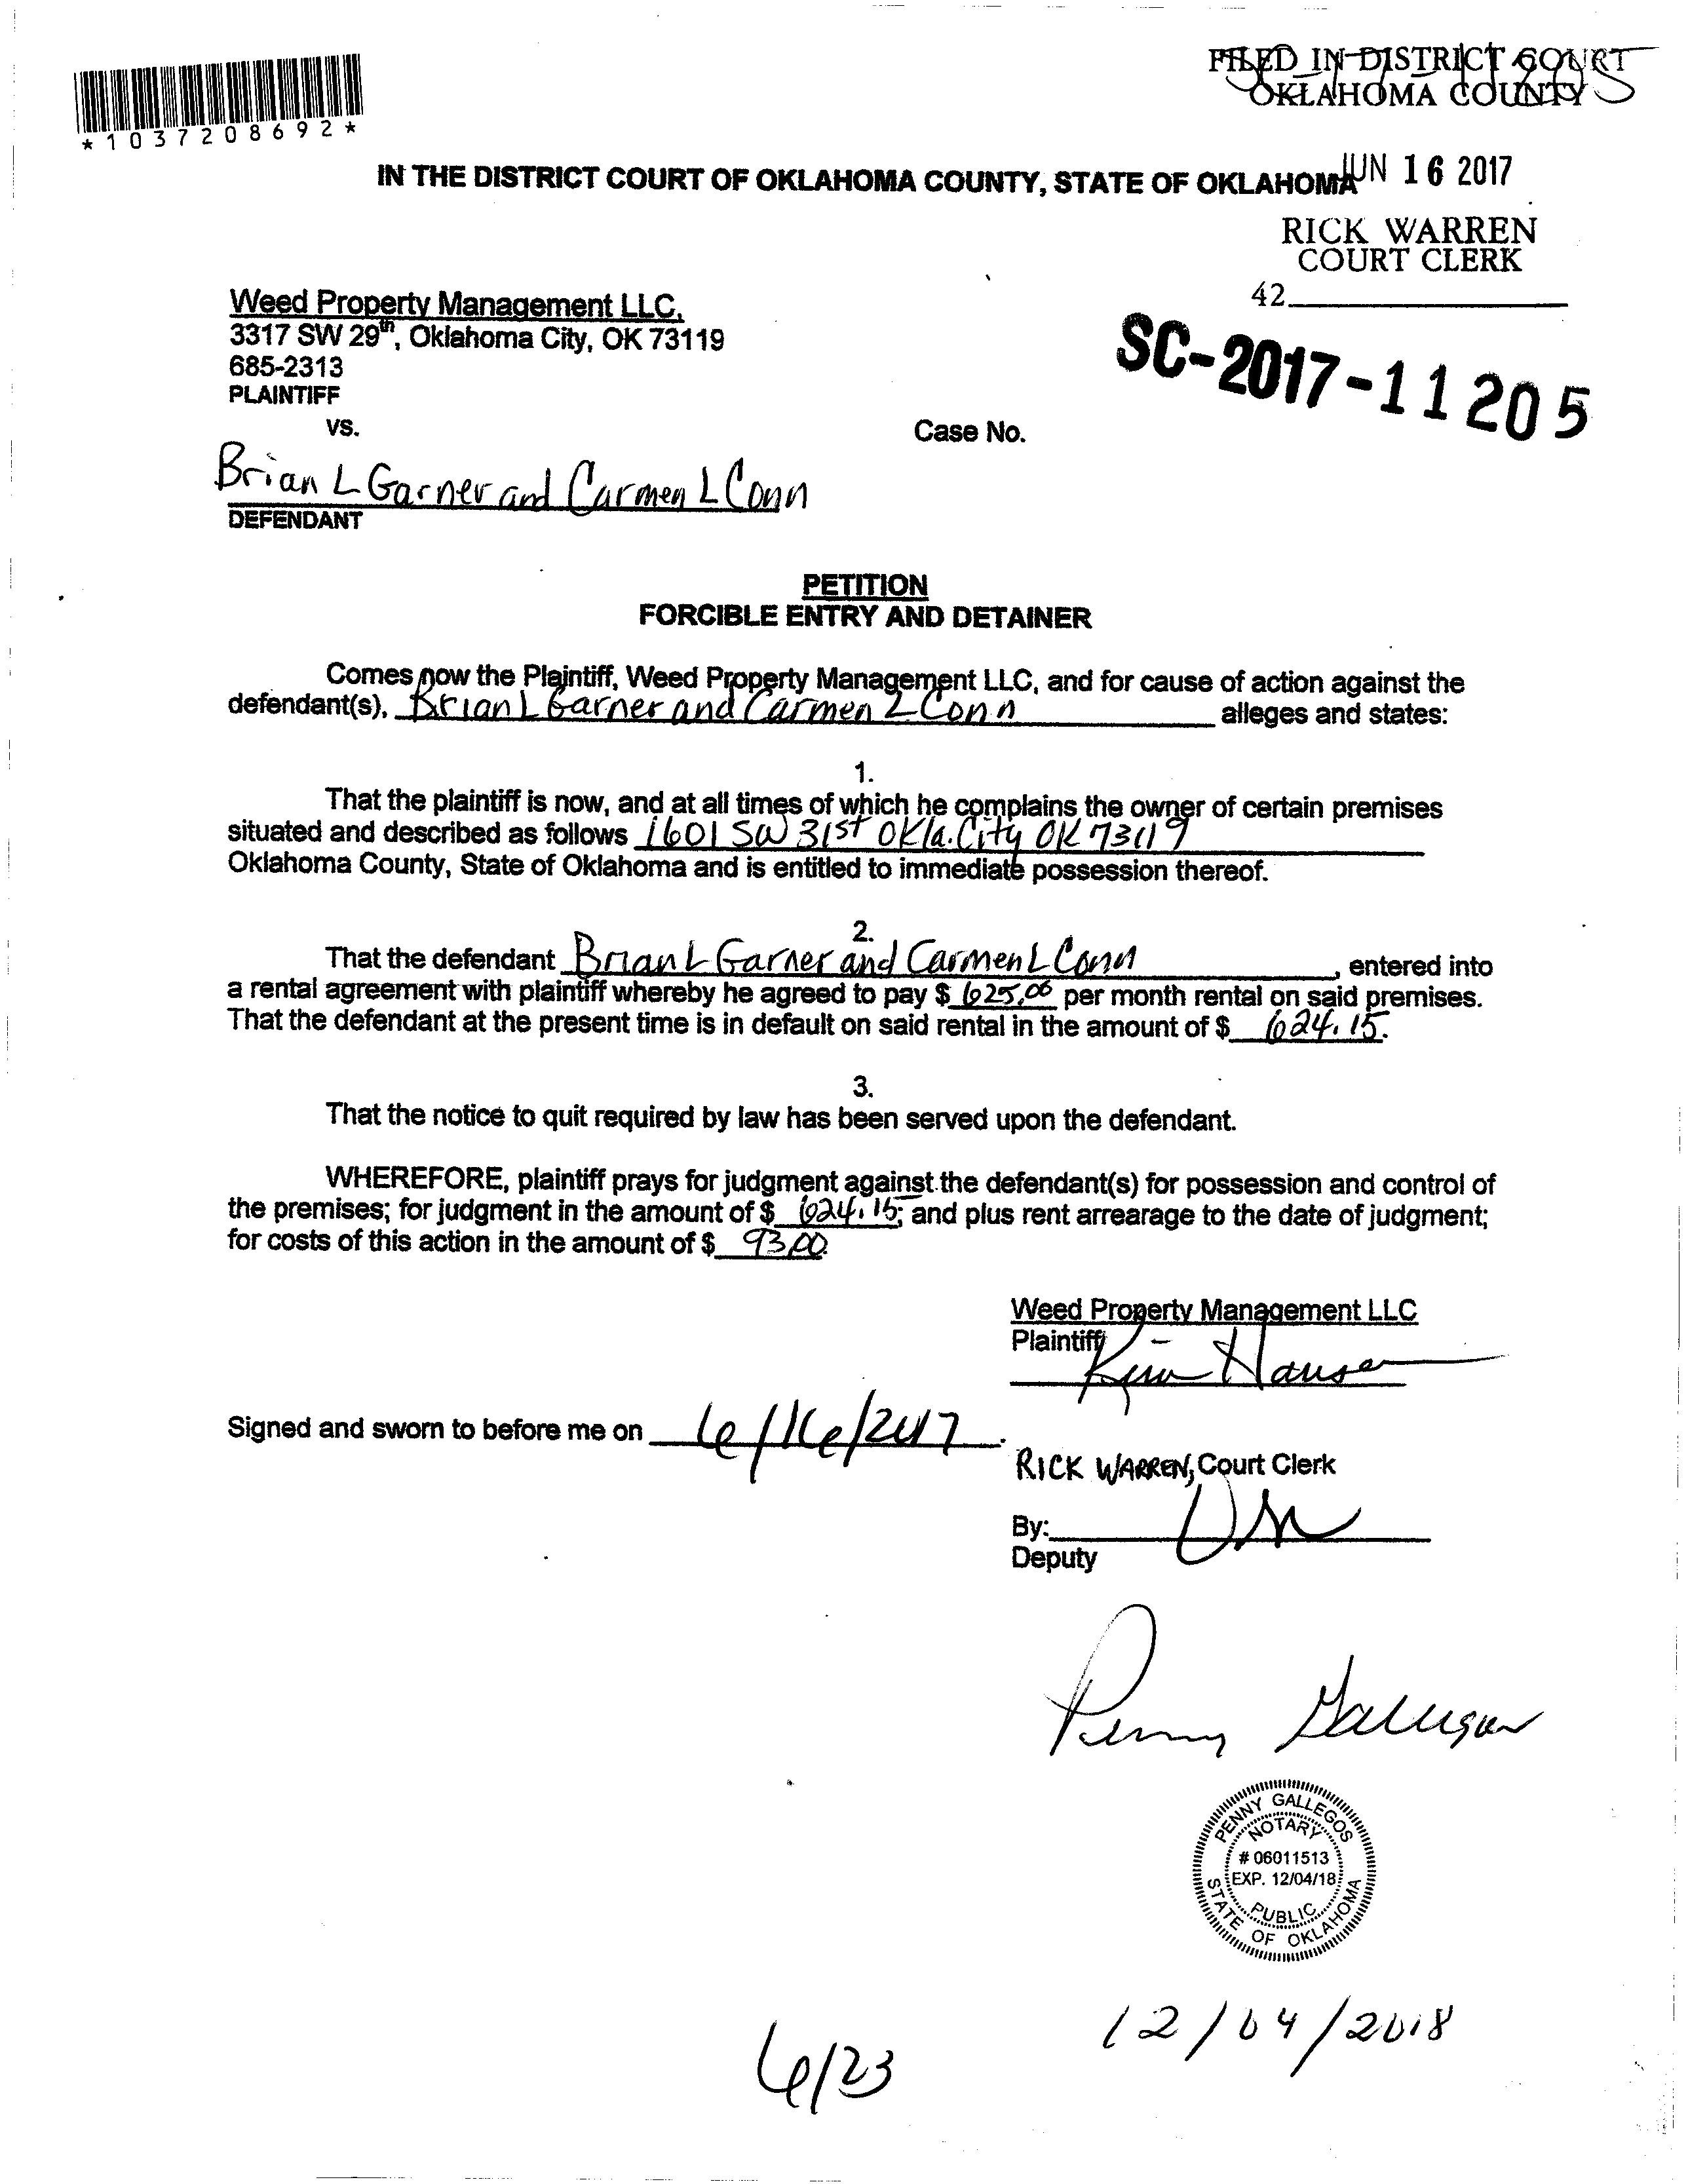 FILED IN DISTRICT COURT
OKLAHOMA COUNTY
*1037208692*
IN THE DISTRICT COURT OF OKLAHOMA COUNTY, STATE OF OKLAHOMA
JUN 16 2017
RICK WARREN
COURT CLERK
42
Weed Property Management LLC,
3317 SW 29th, Oklahoma City, OK 73119
685-2313
PLAINTIFF
vs.
SC-2017-11205
Case No.
Brian L Garner and Carmen L Conn
DEFENDANT
PETITION
FORCIBLE ENTRY AND DETAINER
Comes now the Plaintiff, Weed Property Management LLC, and for cause of action against the
defendant(s), Brian L Garner and Carmen L Conn alleges and states:
1.
That the plaintiff is now, and at all times of which he complains the owner of certain premises
situated and described as follows 1601 SW 31st Okla. City OK 73119
Oklahoma County, State of Oklahoma and is entitled to immediate possession thereof.
2.
That the defendant Brian L Garner and Carmen L Conn, entered into
a rental agreement with plaintiff whereby he agreed to pay $ 625.00 per month rental on said premises.
That the defendant at the present time is in default on said rental in the amount of $ 624.15.
3.
That the notice to quit required by law has been served upon the defendant.
WHEREFORE, plaintiff prays for judgment against the defendant(s) for possession and control of
the premises; for judgment in the amount of $ 624.15; and plus rent arrearage to the date of judgment;
for costs of this action in the amount of $ 93.00.
Weed Property Management LLC
Plaintiff
Signed and sworn to before me on 6/16/2017.
RICK WARREN, Court Clerk
By:
Deputy
Penny Gallegos
PENNY GALLEGOS
NOTARY
# 06011513
EXP. 12/04/18
PUBLIC
STATE OF OKLAHOMA
12/04/2018
6/23